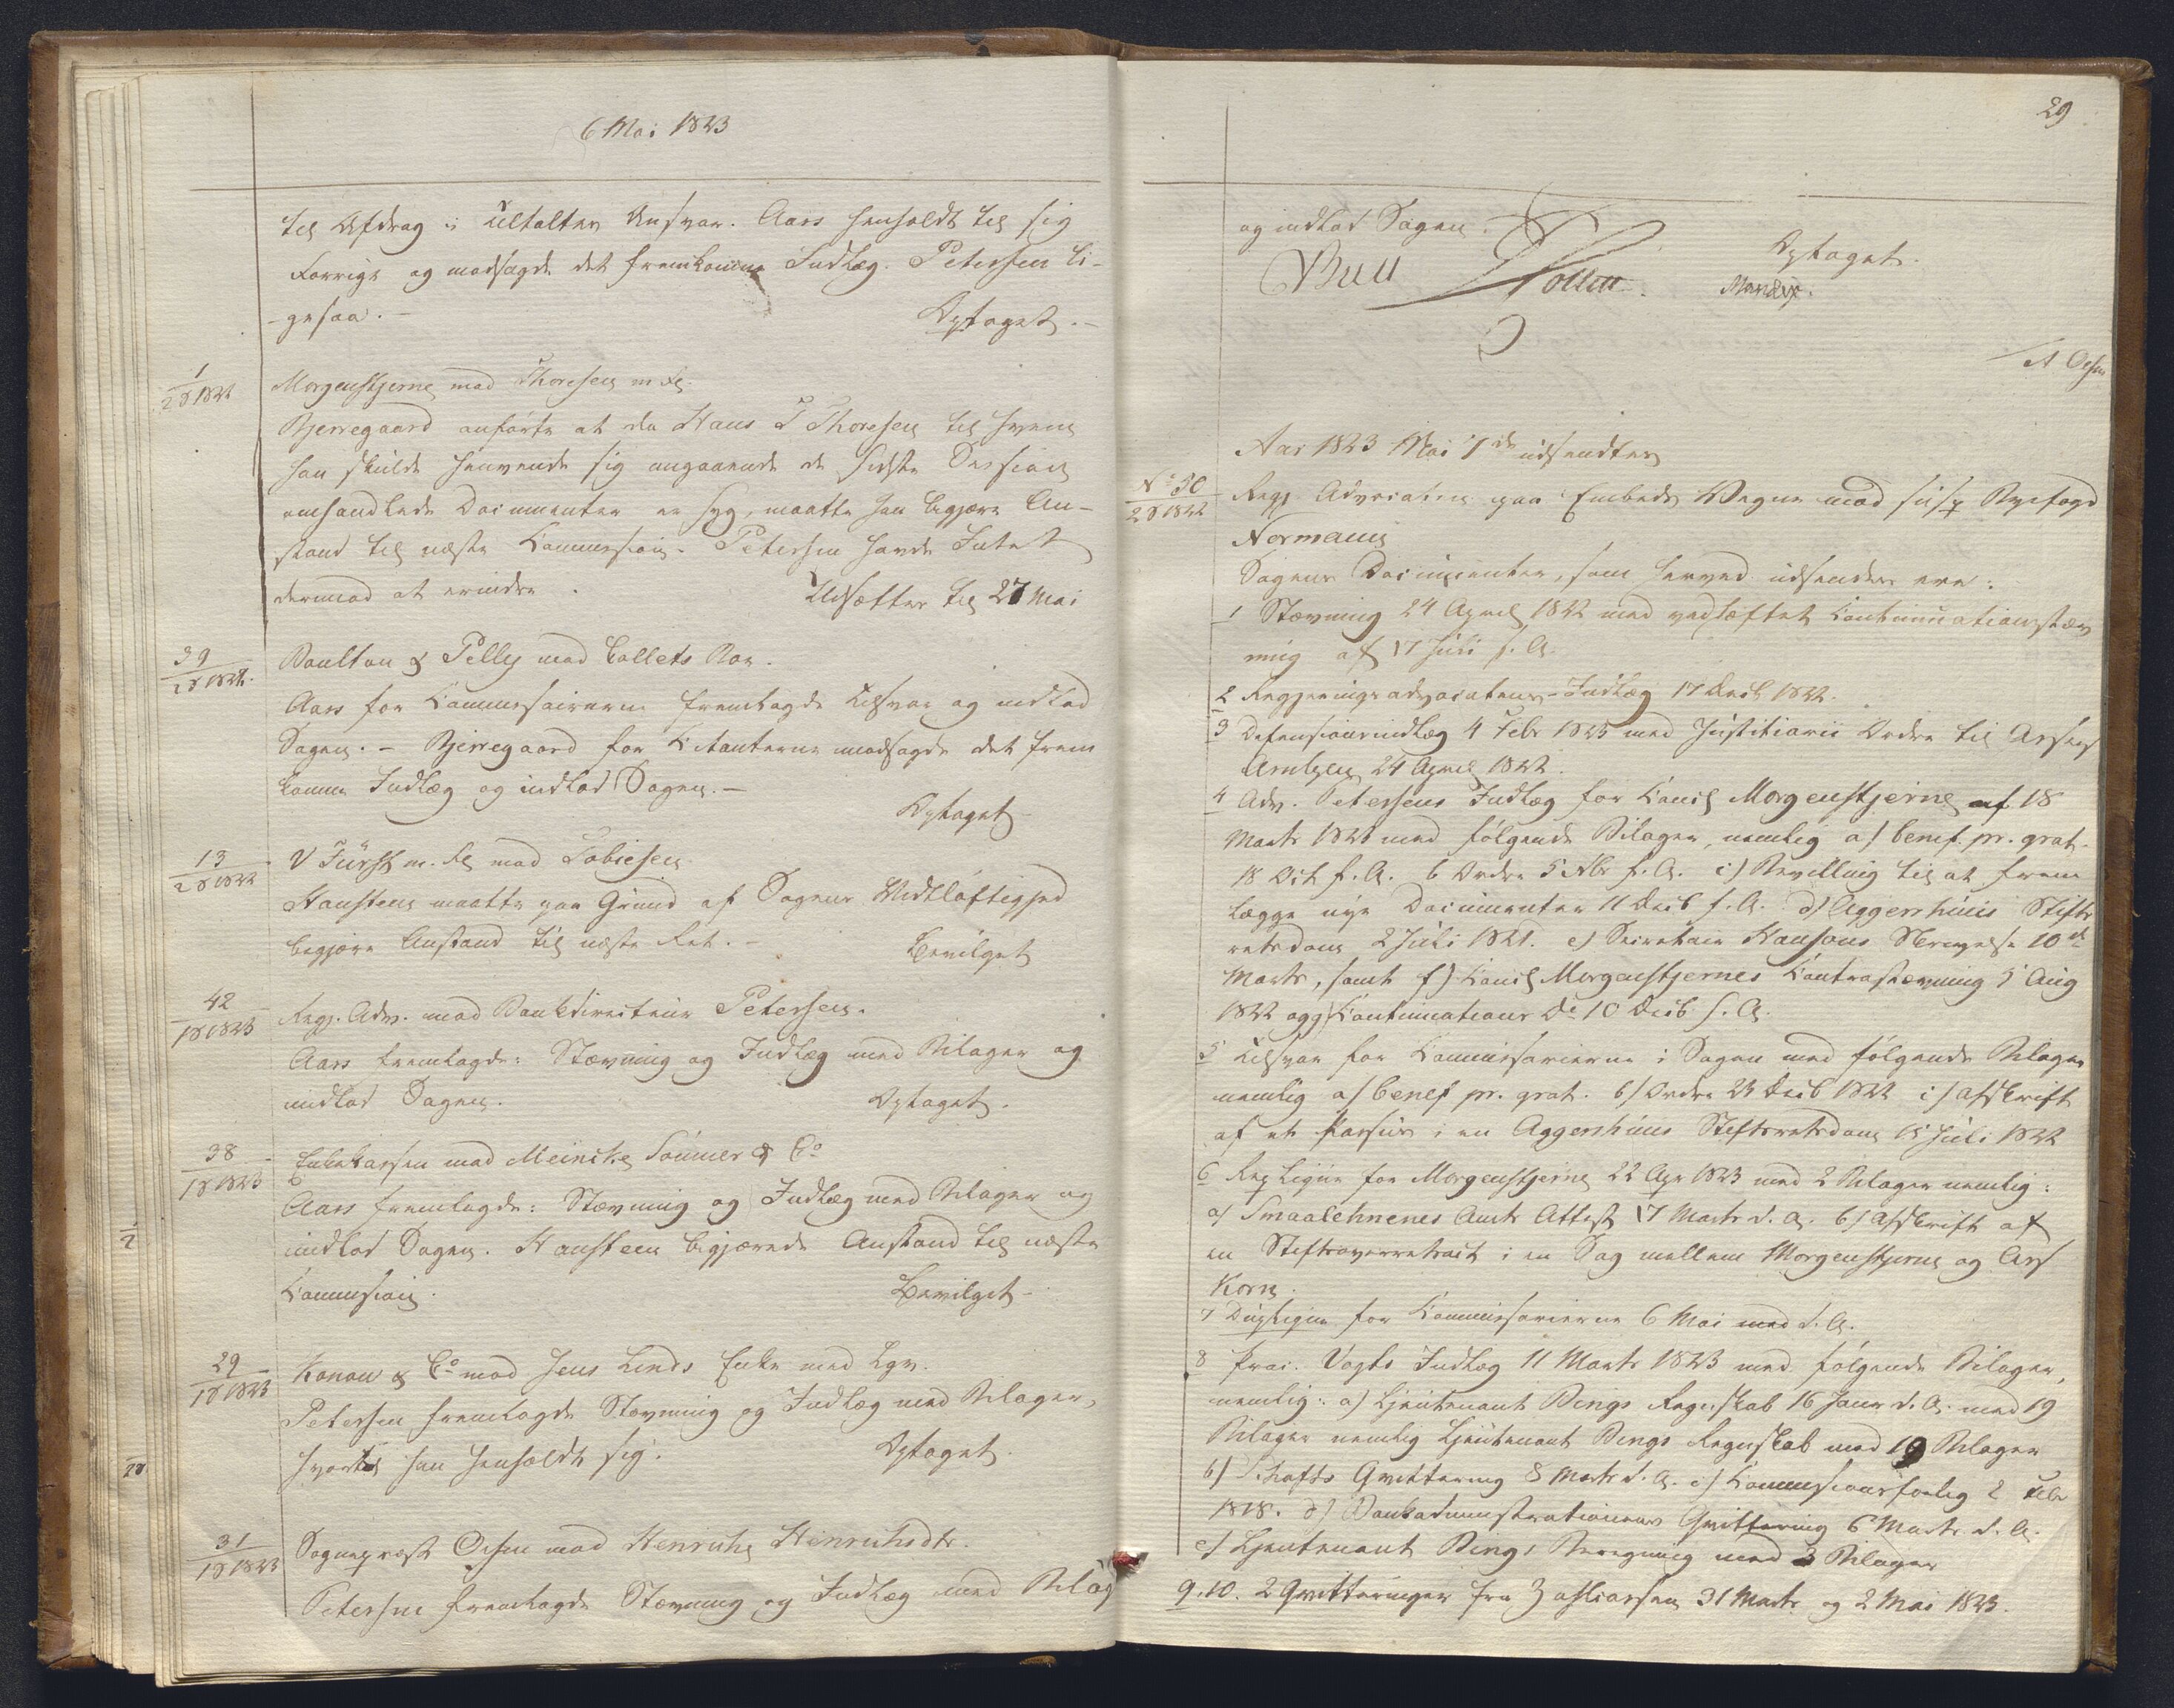 6 Mai 1823
til Afdrag i Uhlalters Ansvar. Aars henholdt til sig
Forrige og modsagde det fremkomne Indlæg. Petersen li-
-gesaa. -
Optaget. -
1
2 S 1822
Morgenstjerne mod Thoresen m. fl.
Bjerregaard anførte at da Hans T Thoresen til hvem
han skulde henvende sig angaaende de sidste Session
omhandlede Documenter er syg, maatte han begjære An-
stand til næste Commission. Petersen havde Intet
dermod at erindre.
Udsættes til 27 Mai
39
2 S 1822.
Boulton & Pelly mod Collets Boe.
Aars for Commissairerne fremlagde Tilsvar og indlod
Sagen. - Bjerregaard for Citanterne modsagde det frem
komne Indlæg og indlod Sagen. -
Optaget
13
2 S 1822
V Fürst m. fl. mod Tobiesen
Hansteen maatte paa Grund af Sagens Vidtløftighed
begjære Anstand til næste Ret. -
Bevilget
42
1 S 1823
Regj. Adv. mod Bankdirecteur Petersen.
Aars fremlagde: Stævning og Indlæg med Bilager og
indlod Sagen.
Optaget.
38
1 S 1823
Enkekassen mod Meincke Sommer & Co
Aars fremlagde: Stævning og Indlæg med Bilager og
indlod Sagen. Hansteen begjærede Anstand til næste
Commission.
Bevilget -
29
1 S 1823
Konow & Co mod Jens Linds Enke med Lgv.
Petersen fremlagde Stævning og Indlæg med Bilager,
hvortil han henholdt sig.
Optaget.
31
1 S 1823
Sognepræst Olsen mod Henrich Henrichsdtr.
Petersen fremlagde Stævning og Indlæg med Bilag
29
og indlod Sagen.
Optaget.
Bull
Collett.
Mandix.
Aar 1823 Mai 7de udsendtes
No 50
2 S 1822
Regj. Advocaten paa Embeds Vegne mod susp Byefogd
Normann
Sagens Documenter, som herved udsendes ere:
1 Stævning 24 April 1822 med vedhæftet Continuationsstæv
ning af 17 Juli s. A.
2 Regjeringsadvocatens Indlæg 17 Decb 1822.
3 Defensionsindlæg 4 Febr 1823 med Justitiarii Ordre til Assess
Arntzen 24 April 1822.
4 Adv. Petersens Indlæg for Cancl Morgenstjerne af 18
Marts 1823 med følgende Bilager, nemlig a) benef. pr. grat.
18 Oct s. A. b Ordre 5 Nbr s. A. c) Bevilling til at frem
lægge nye Documenter 11 Decb s. A. d) Aggershuus Stifts
retsdom 2 Juli 1821. e) Secretair Hansons Skrivelse 10de
Marts, samt f) Cancl Morgenstjernes Contrastævning 5 Aug
1822 og g) Continuations Do 10 Decb s. A.
5 Tilsvar for Commissarierne i Sagen med følgende Bilager
nemlig a) benef pr. grat. b) Ordre 23 Decb 1822 c) Afskrift
af et Passus i en Aggershuus Stiftsretsdom 15 Juli 1822
6 Replique for Morgenstjerne 22 Apr 1823 med 2 Bilager nemlig:
a) Smaalehnenes Amts Attest 17 Marts d. A. b) Afskrift af
en Stiftsoverretsact i en Sag mellem Morgenstjerne og Ass
Korn.
7 Duplique for Commissarierne 6 Mai d. A.
8 Proc. Vogts Indlæg 11 Marts 1823 med følgende Bilager,
nemlig: a) Lieutenant Bings Regnskab 16 Janr d. A. med 19
Bilager nemlig Lieutenant Bings Regnskab med 19 Bilager
b) Schafts Qvittering 8 Marts d. A. c) Commissionsforlig 2 Febr
1818. d) Bankadministrationens Qvittering 6 Marts d. A.
e) Lieutenant Bings Beregning med 3 Bilager
9. 10. 2 Qvitteringer fra Zahlcassen 31 Marts og 2 Mai 1823.